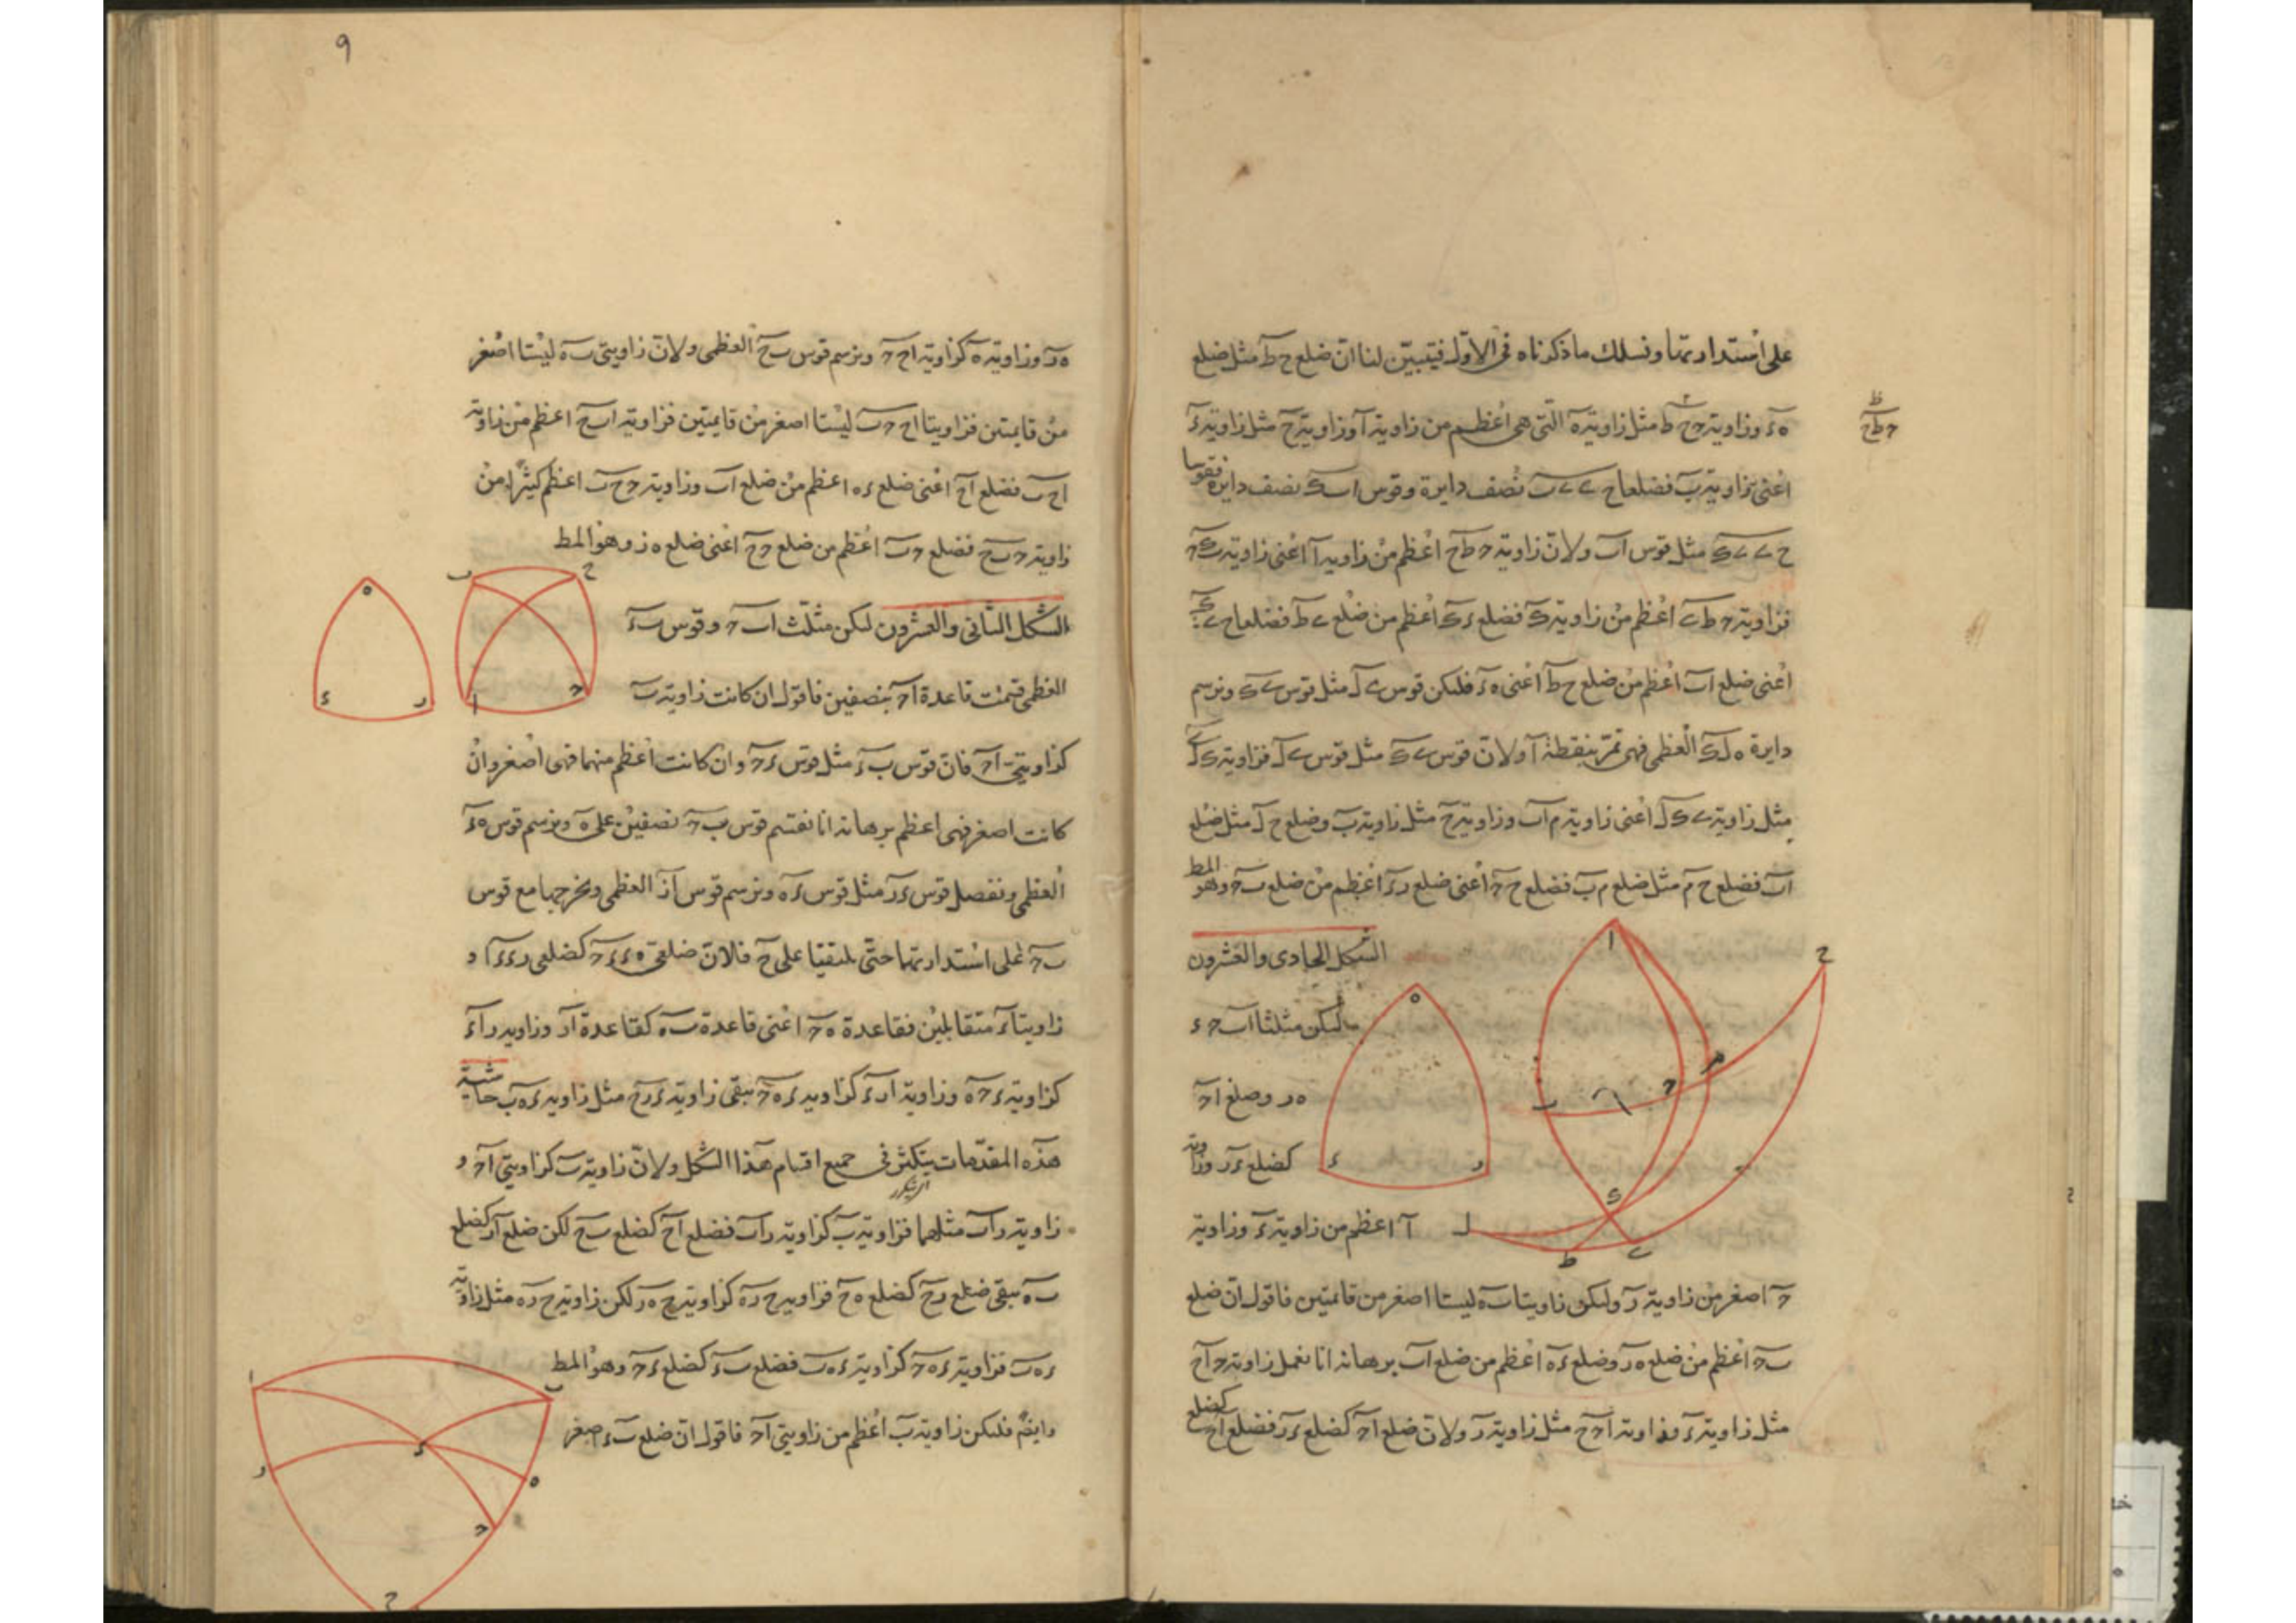 على استدارتها ونسلك ما ذكرناه في الاول فيتبين لنا ان ضلع ح ط مثل ضلع
ه ء وزاوية ح ط مثل زاوية ه التي هي اعظم من زاوية ا وزاوية ح مثل زاوية ء
ط
ح ط ح
اعنى زاوية ب فضلعا ح ى ى ب نصف دايرة وقوس ا ب ك نصف دايرة فقوسا
ح ى ى ك مثل قوس ا ب ولان زاوية ح ط ح اعظم من زاوية ا اعنى زاوية ب ك ح
فزاوية ح ط ى اعظم من زاوية ك فضلع ى ك اعظم من ضلع ى ط فضلعا ح ى ى ك
اعنى ضلع ا ب اعظم من ضلع ح ط اعنى ه ء فليكن قوس ى ل مثل قوس ى ك ونرسم
دايرة ه ل ك العظمى فهى تمر بنقطة ا ولان قوس ى ك مثل قوس ى ل فزاوية ك ل ى
مثل زاوية ى ك ل اعنى زاوية م ا ب وزاوية ح مثل زاوية ب وضلع ح ل مثل ضلع
ا ب فضلع ح م مثل ضلع م ب فضلع ح ح اعنى ضلع ر ء اعظم من ضلع ب ح وهو المط
الشكل الحادى والعشرون
ليكن مثلثا ا ب ح ء
ه ر وضلع ا ح
كضلع ء ر وزاوية
ا اعظم من زاوية ء وزاوية
ح اصغر من زاوية ر وليكن زاويتا ب ه ليستا اصغر من قايمتين فاقول ان ضلع
ب ح اعظم من ضلع ه ر وضلع ء ه اعظم من ضلع ا ب برهانه انا نعمل زاوية ح ا ح
مثل زاوية ء وزاوية ا ح ح مثل زاوية ر ولان ضلع ا ح كضلع ء ر فضلع ا ح كضلع
٩
ه ر وزاوية ه كزاوية ا ح ح ونرسم قوس ب ح العظمى ولان زاويتى ب ه ليستا اصغر
من قايمتين فزاويتا ا ح ح ب ليستا اصغر من قايمتين فزاوية ا ب ح اعظم من زاوية
ا ح ب فضلع ا ح اعنى ضلع ء ه اعظم من ضلع ا ب وزاوية ح ح ب اعظم كثيرا من
زاوية ح ب ح فضلع ح ب اعظم من ضلع ح ح اعنى ضلع ه ز وهو المط
الشكل الثانى والعشرون ليكن مثلث ا ب ح وقوس ب ء
العظمى قسمت قاعدة ا ح بنصفين فاقول ان كانت زاوية ب
كزاويتى ا ح فان قوس ب ء مثل قوس ء ح وان كانت اعظم منهما فهى اصغر وان
كانت اصغر فهى اعظم برهانه انا نقسم قوس ب ح نصفين على ه ونرسم قوس ه ء
العظمى ونفصل قوس ء ر مثل قوس ء ه ونرسم قوس ا ز العظمى ونخرجها مع قوس
ب ح على استدارتهما حتى يلتقيا على ح فلان ضلعى ه ء ء ح كضلعى ر ء ء ا و
زاويتا ء متقابلين فقاعدة ه ح اعنى قاعدة ب ه كقاعدة ا ر وزاوية ر ا ء
كزاوية ء ح ه وزاوية ا ر ء كزاوية ء ه ح تبقى زاوية ء ر ح مثل زاوية ء ه ب حاشية
هذه المقدمات يتكثر فى جميع اقسام هذا الشكل ولان زاوية ب كزاويتى ا ح و
زاوية ر ا ب مثلهما فزاوية ب كزاوية ر ا ب فضلع ا ح كضلع ب ح لكن ضلع ا ر كضلع
ب ه تبقى ضلع ر ح كضلع ه ح فزاوية ح ر ه كزاوية ح ه ر لكن زاوية ح ر ء مثل زاوية
ء ه ب فزاوية ء ه ح كزاوية ء ه ب فضلع ب ء كضلع ء ح وهو المط
وايضا فليكن زاوية ب اعظم من زاويتى ا ح فاقول ان ضلع ب ء اصغر